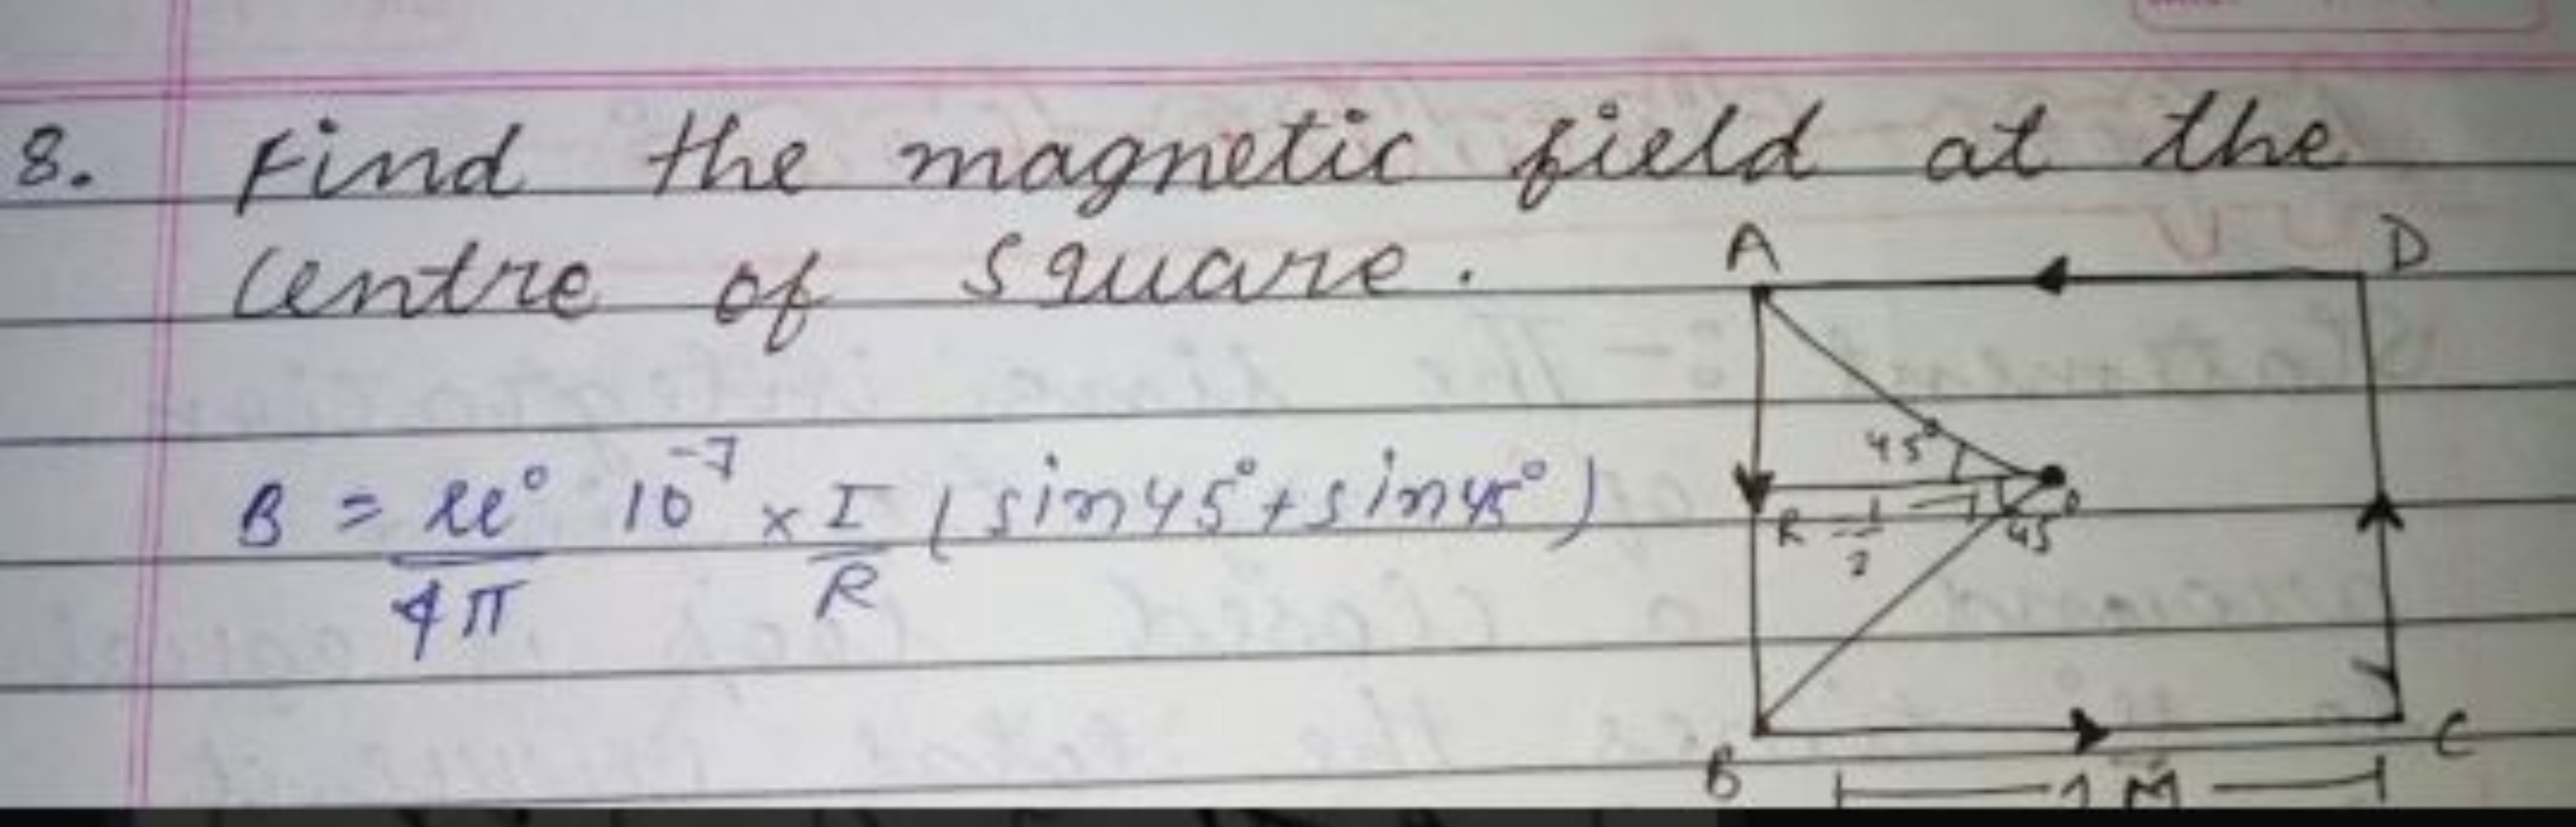 8. Find the magnetic field at the
centre of square.
A
D
B = μ° 10⁻⁷ × I (sin45° + sin45°)
4π
R
45°
R = 1
2
45
B
C
1 M